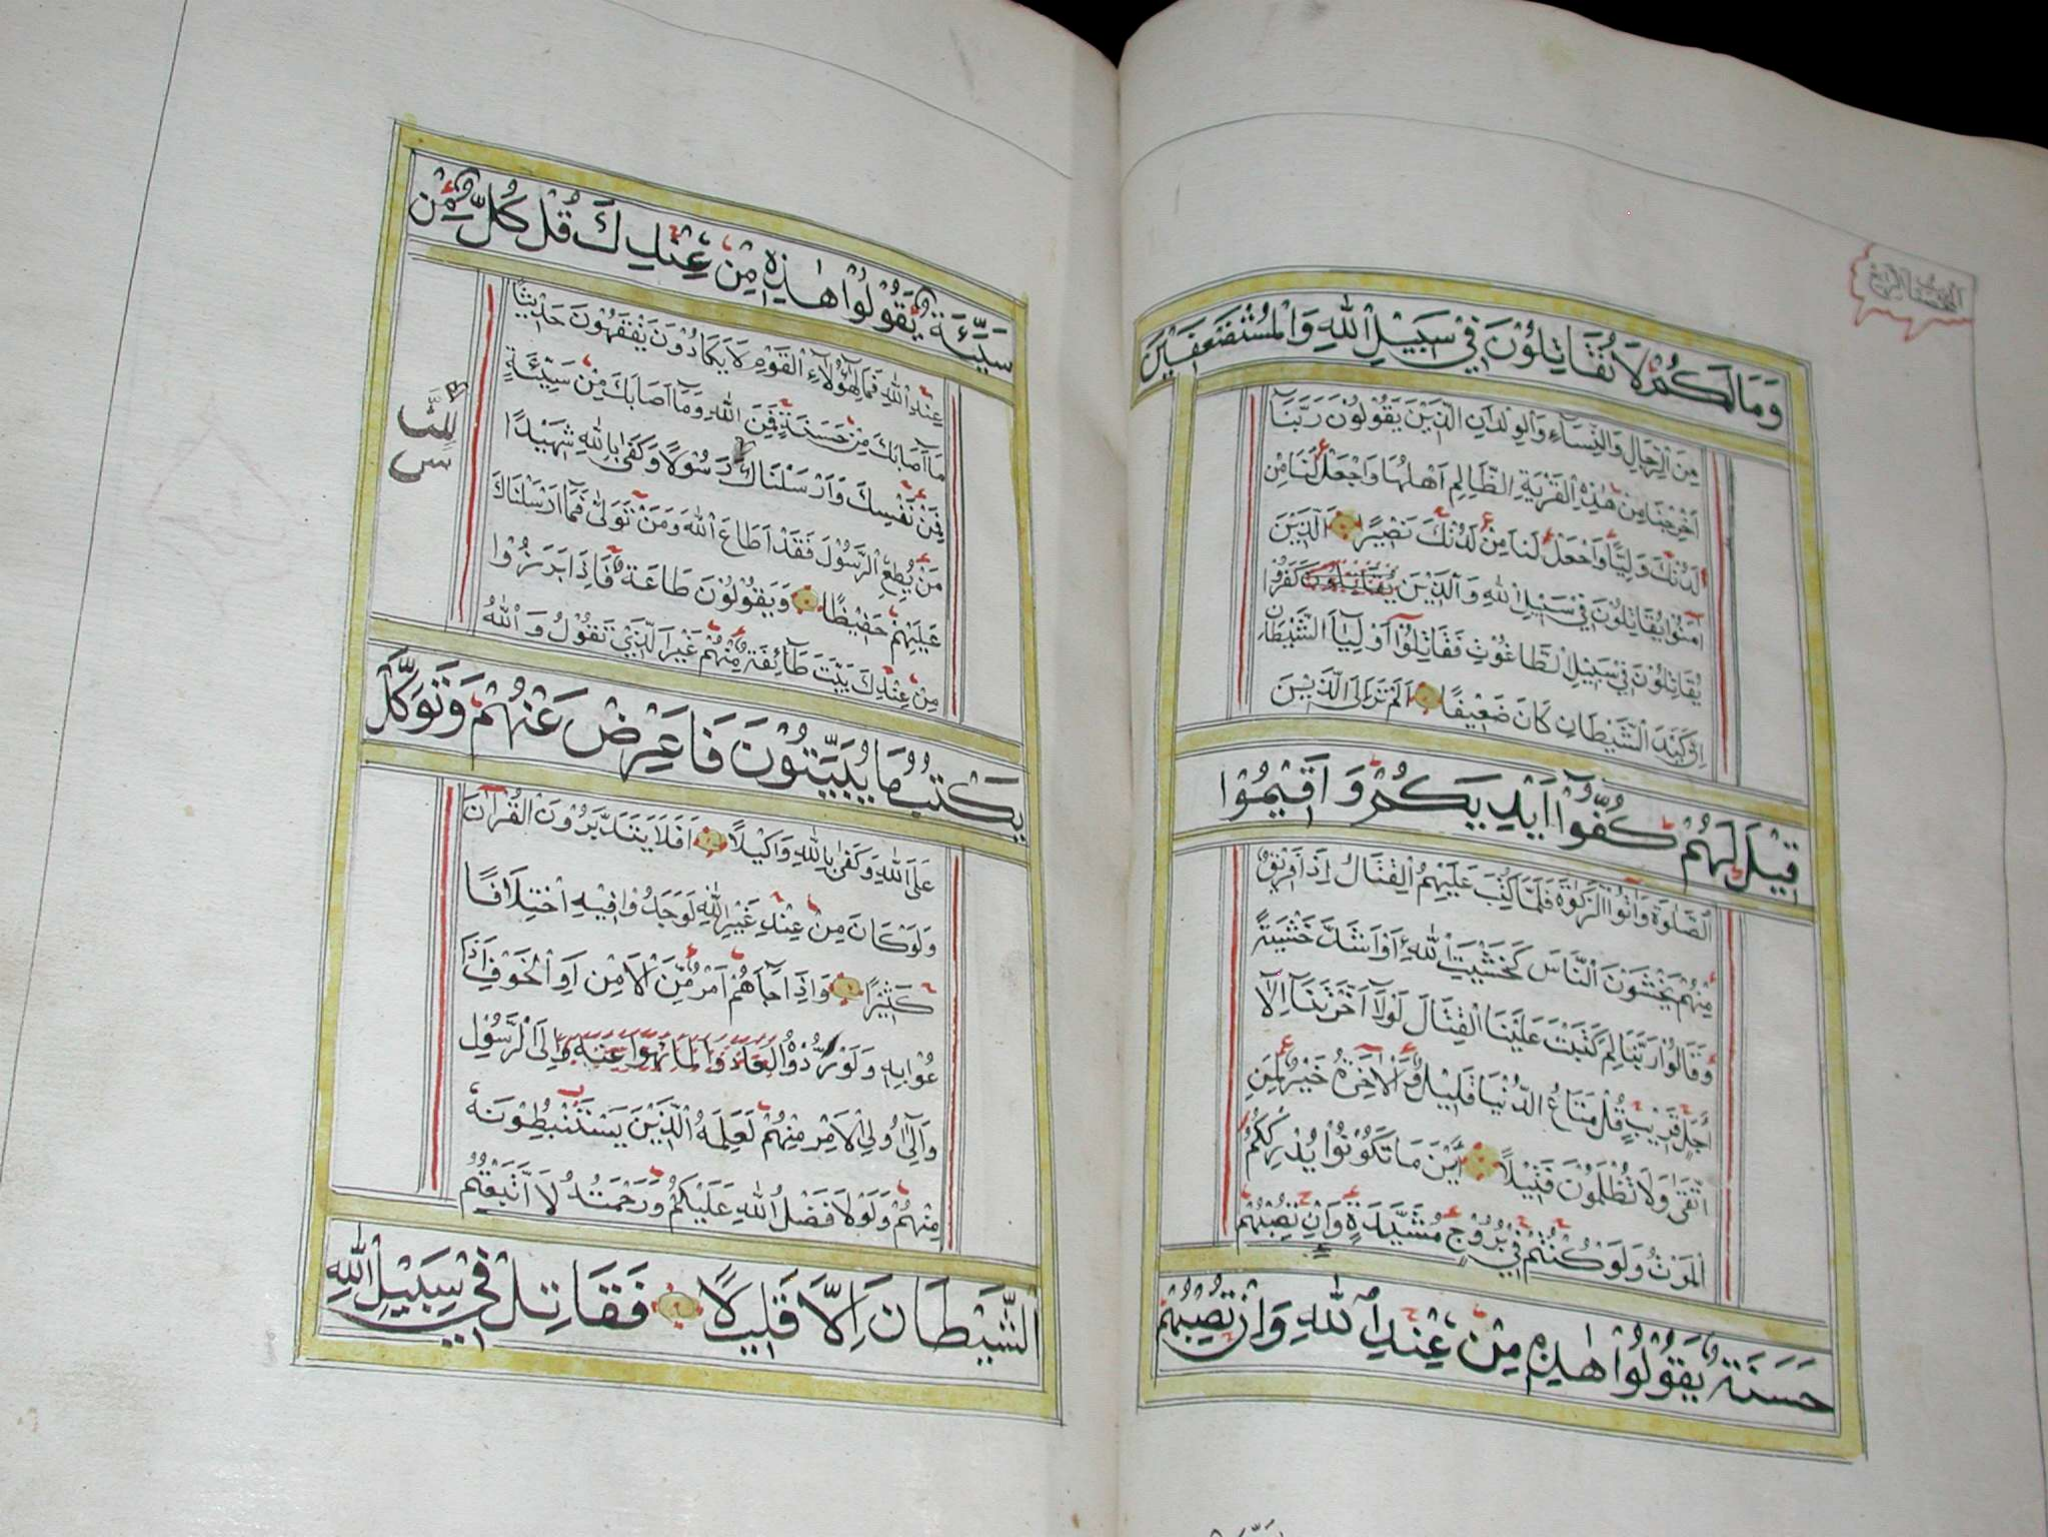 وَمَالَكُمْ لَا تُقَاتِلُوْنَ فِيْ سَبِيْلِ اللّٰهِ وَالْمُسْتَضْعَفِيْنَ
مِنَ الرِّجَالِ وَالنِّسَاءِ وَالْوِلْدَانِ الَّذِيْنَ يَقُولُوْنَ رَبَّنَا
اَخْرِجْنَا مِنْ هٰذِهِ الْقَرْيَةِ الظَّالِمِ اَهْلُهَا وَاجْعَلْ لَنَا مِنْ
لَدُنْكَ وَلِيًّا وَاجْعَلْ لَنَا مِنْ لَدُنْكَ نَصِيْرًا اَلَّذِيْنَ
اٰمَنُوْا يُقَاتِلُوْنَ فِيْ سَبِيْلِ اللّٰهِ وَالَّذِيْنَ يُقَاتِلُوْنَ كَفَرُوْا
يُقَاتِلُوْنَ فِيْ سَبِيْلِ الطَّاغُوْتِ فَقَاتِلُوْٓا اَوْلِيَآءَ الشَّيْطَانِ
اِنَّ كَيْدَ الشَّيْطَانِ كَانَ ضَعِيْفًا اَلَمْ تَرَ اِلَى الَّذِيْنَ
قِيْلَ لَهُمْ كُفُّوْٓا اَيْدِيَكُمْ وَاَقِيْمُوْا
الصَّلٰوةَ وَاٰتُوْا الزَّكٰوةَ فَلَمَّا كُتِبَ عَلَيْهِمُ الْقِتَالُ اِذَا فَرِيْقٌ
مِنْهُمْ يَخْشَوْنَ النَّاسَ كَخَشْيَةِ اللّٰهِ اَوْ اَشَدَّ خَشْيَةً
وَقَالُوْا رَبَّنَا لِمَ كَتَبْتَ عَلَيْنَا الْقِتَالَ لَوْلَآ اَخَّرْتَنَآ اِلٰٓى
اَجَلٍ قَرِيْبٍ قُلْ مَتَاعُ الدُّنْيَا قَلِيْلٌ وَالْاٰخِرَةُ خَيْرٌ لِمَنِ
اتَّقٰى وَلَا تُظْلَمُوْنَ فَتِيْلًا اَيْنَ مَا تَكُوْنُوْا يُدْرِكْكُمُ
الْمَوْتُ وَلَوْ كُنْتُمْ فِيْ بُرُوْجٍ مُشَيَّدَةٍ وَاِنْ تُصِبْهُمْ
حَسَنَةٌ يَقُوْلُوْا هٰذِهٖ مِنْ عِنْدِ اللّٰهِ وَاِنْ تُصِبْهُمْ
سَيِّئَةٌ يَقُوْلُوْا هٰذِهٖ مِنْ عِنْدِكَ قُلْ كُلٌّ مِنْ
عِنْدِ اللّٰهِ فَمَالِ هٰٓؤُلَآءِ الْقَوْمِ لَا يَكَادُوْنَ يَفْقَهُوْنَ حَدِيْثًا
مَآ اَصَابَكَ مِنْ حَسَنَةٍ فَمِنَ اللّٰهِ وَمَآ اَصَابَكَ مِنْ سَيِّئَةٍ
فَمِنْ نَفْسِكَ وَاَرْسَلْنَاكَ رَسُوْلًا وَكَفٰى بِاللّٰهِ شَهِيْدًا
مَنْ يُطِعِ الرَّسُوْلَ فَقَدْ اَطَاعَ اللّٰهَ وَمَنْ تَوَلّٰى فَمَآ اَرْسَلْنَاكَ
عَلَيْهِمْ حَفِيْظًا وَيَقُوْلُوْنَ طَاعَةٌ فَاِذَا بَرَزُوْا
مِنْ عِنْدِكَ بَيَّتَ طَآئِفَةٌ مِنْهُمْ غَيْرَ الَّذِيْ تَقُوْلُ وَاللّٰهُ
يَكْتُبُ مَا يُبَيِّتُوْنَ فَاَعْرِضْ عَنْهُمْ وَتَوَكَّلْ
عَلَى اللّٰهِ وَكَفٰى بِاللّٰهِ وَكِيْلًا اَفَلَا يَتَدَبَّرُوْنَ الْقُرْاٰنَ
وَلَوْ كَانَ مِنْ عِنْدِ غَيْرِ اللّٰهِ لَوَجَدُوْا فِيْهِ اخْتِلَافًا
كَثِيْرًا وَاِذَا جَآءَهُمْ اَمْرٌ مِّنَ الْاَمْنِ اَوِ الْخَوْفِ اَذَا
عُوْا بِهٖ وَلَوْ رُدُّوْهُ الْعَادُوْا لِمَا نُهُوْا عَنْهُ اِلَى الرَّسُوْلِ
وَاِلٰٓى اُولِي الْاَمْرِ مِنْهُمْ لَعَلِمَهُ الَّذِيْنَ يَسْتَنْبِطُوْنَهٗ
مِنْهُمْ وَلَوْلَا فَضْلُ اللّٰهِ عَلَيْكُمْ وَرَحْمَتُهُ لَاتَّبَعْتُمُ
الشَّيْطَانَ اِلَّا قَلِيْلًا فَقَاتِلْ فِيْ سَبِيْلِ اللّٰهِ